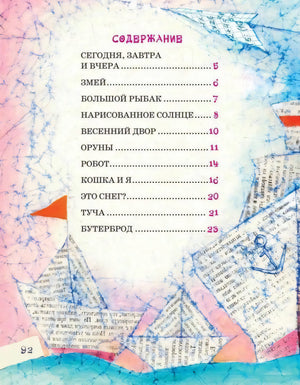 СОДЕРЖАНИЕ
СЕГОДНЯ, ЗАВТРА
И ВЧЕРА 5
ЗМЕЙ 6
БОЛЬШОЙ РЫБАК 7
НАРИСОВАННОЕ СОЛНЦЕ 8
ВЕСЕННИЙ ДВОР 10
ОРУНЫ 11
РОБОТ 14
КОШКА И Я 16
ЭТО СНЕГ? 20
ТУЧА 21
БУТЕРБРОД 23
92